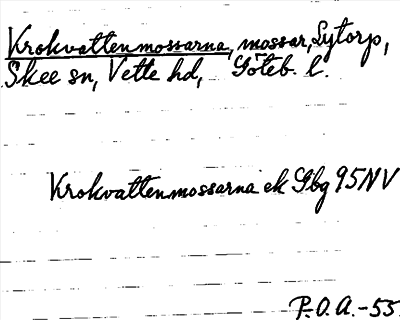 Krokvattenmossarna, mossar, Lytorp,
Skee sn, Vette hd, Göteb. l.
Krokvattenmossarna ek Gbg 95NV
P.O.A. -55